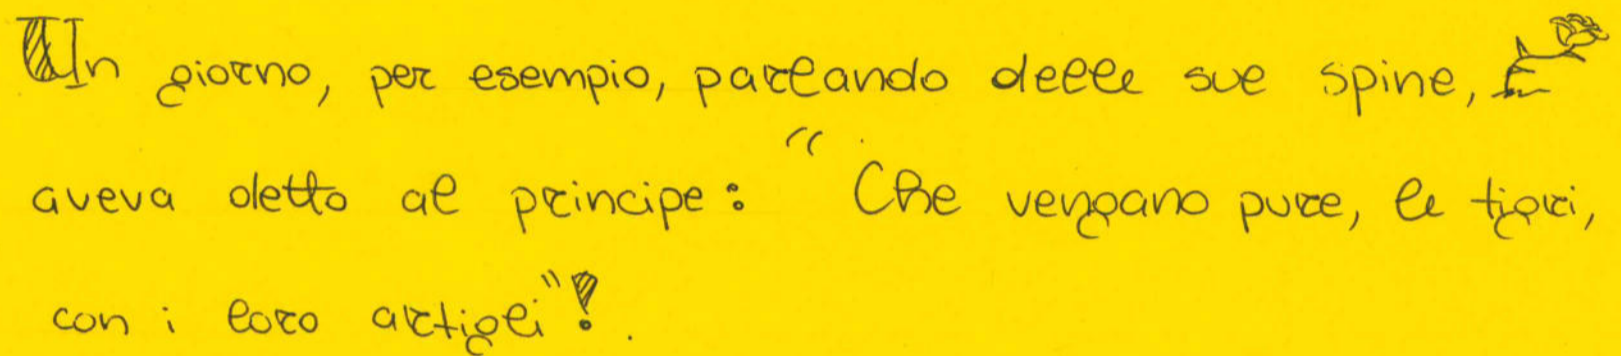 Un giorno, per esempio, parlando delle sue spine,
aveva detto al principe: "Che vengano pure, le tigri,
con i loro artigli"!.